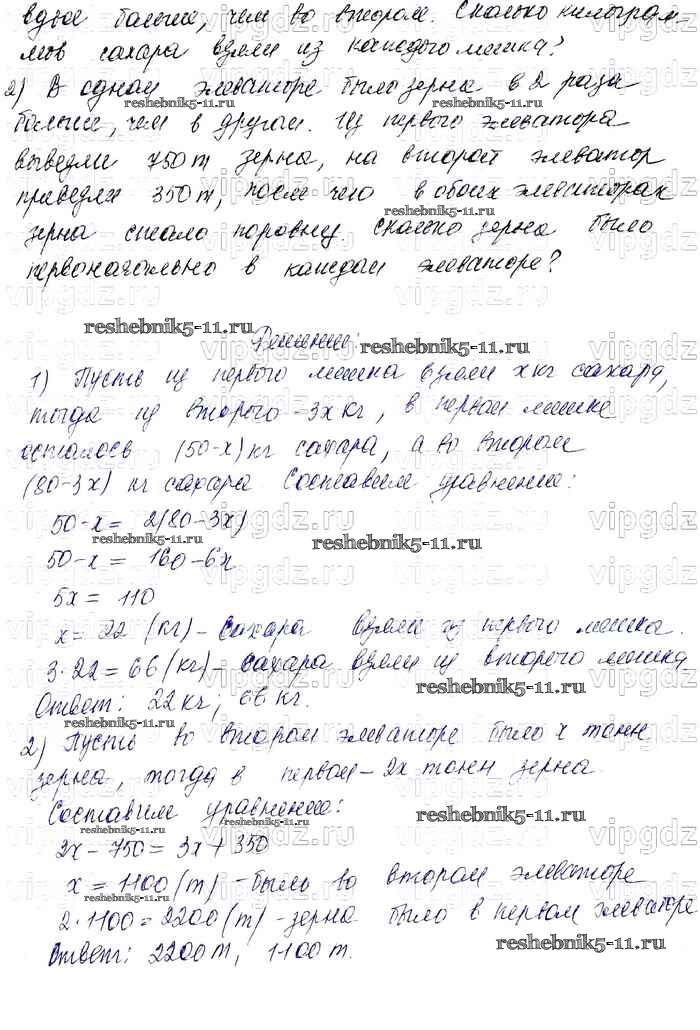 вдвое больше, чем во втором. Сколько килограм-
мов сахара взяли из каждого мешка?
2) В одном элеваторе было зерна в 2 раза
reshebnik5-11.ru.
больше, чем в другом. Из первого элеватора
вывезли 750 т зерна, на второй элеватор
привезли 350 т, после чего в обоих элеваторах
reshebnik5-11.ru
зерна стало поровну. Сколько зерна было
первоначально в каждом элеваторе?
reshebnik5-11.ru
Решение:
reshebnik5-11.ru
1) Пусть из первого мешка взяли x кг сахара,
тогда из второго - 3x кг, в первом мешке
осталось (50-x) кг сахара, а во втором
(80-3x) кг сахара Составим уравнение:
50-x = 2(80-3x)
reshebnik5-11.ru
50-x = 160-6x
5x = 110
x = 22 (кг) - сахара взяли из первого мешка.
3·22 = 66 (кг) - сахара взяли из второго мешка
reshebnik5-11.ru
Ответ: 22 кг; 66 кг.
reshebnik5-11.ru
2) Пусть во втором элеваторе было x тонн
зерна, тогда в первом - 2x тонн зерна
Составим уравнение:
reshebnik5-11.ru
reshebnik5-11.ru
2x - 750 = 3x + 350
x = 1100 (т) - было во втором элеваторе
reshebnik5-11.ru
2·1100 = 2200 (т) - зерна было в первом элеваторе
reshebnik5-11.ru
Ответ: 2200 т, 1100 т.